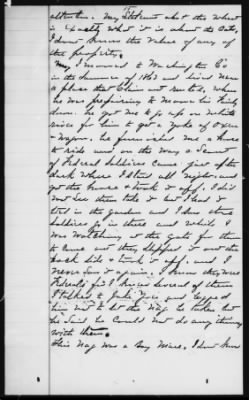 attention. My statement abt the wheat
is exactly what it is about the Oats,
I dont know the value of any of
the property.
My, I moved to Washington Co
in the Summer of 1863 and lived near
a place that Claimant rented, when
he was preparing to move his family
down. he got me to go up on White
river for him to get a yoke of oxen
& wagon. he furnished me a horse
to ride and on the way a Scout
of Federal Soldiers came just after
dark where I staid all night and
got the horse & took it off. I did
not see them take it but I had it
tied in the garden and I saw some
Soldiers go in there and while I
was watching at the gate for them
to come out they slipped it out the
back side & took it off. and I
never saw it again. I know they were
Federals for I knew several of them
I talked to and begged
him not to let the Nag be taken but
he said he could not do any thing
with them.
This Nag was a Bay Mare. I dont know